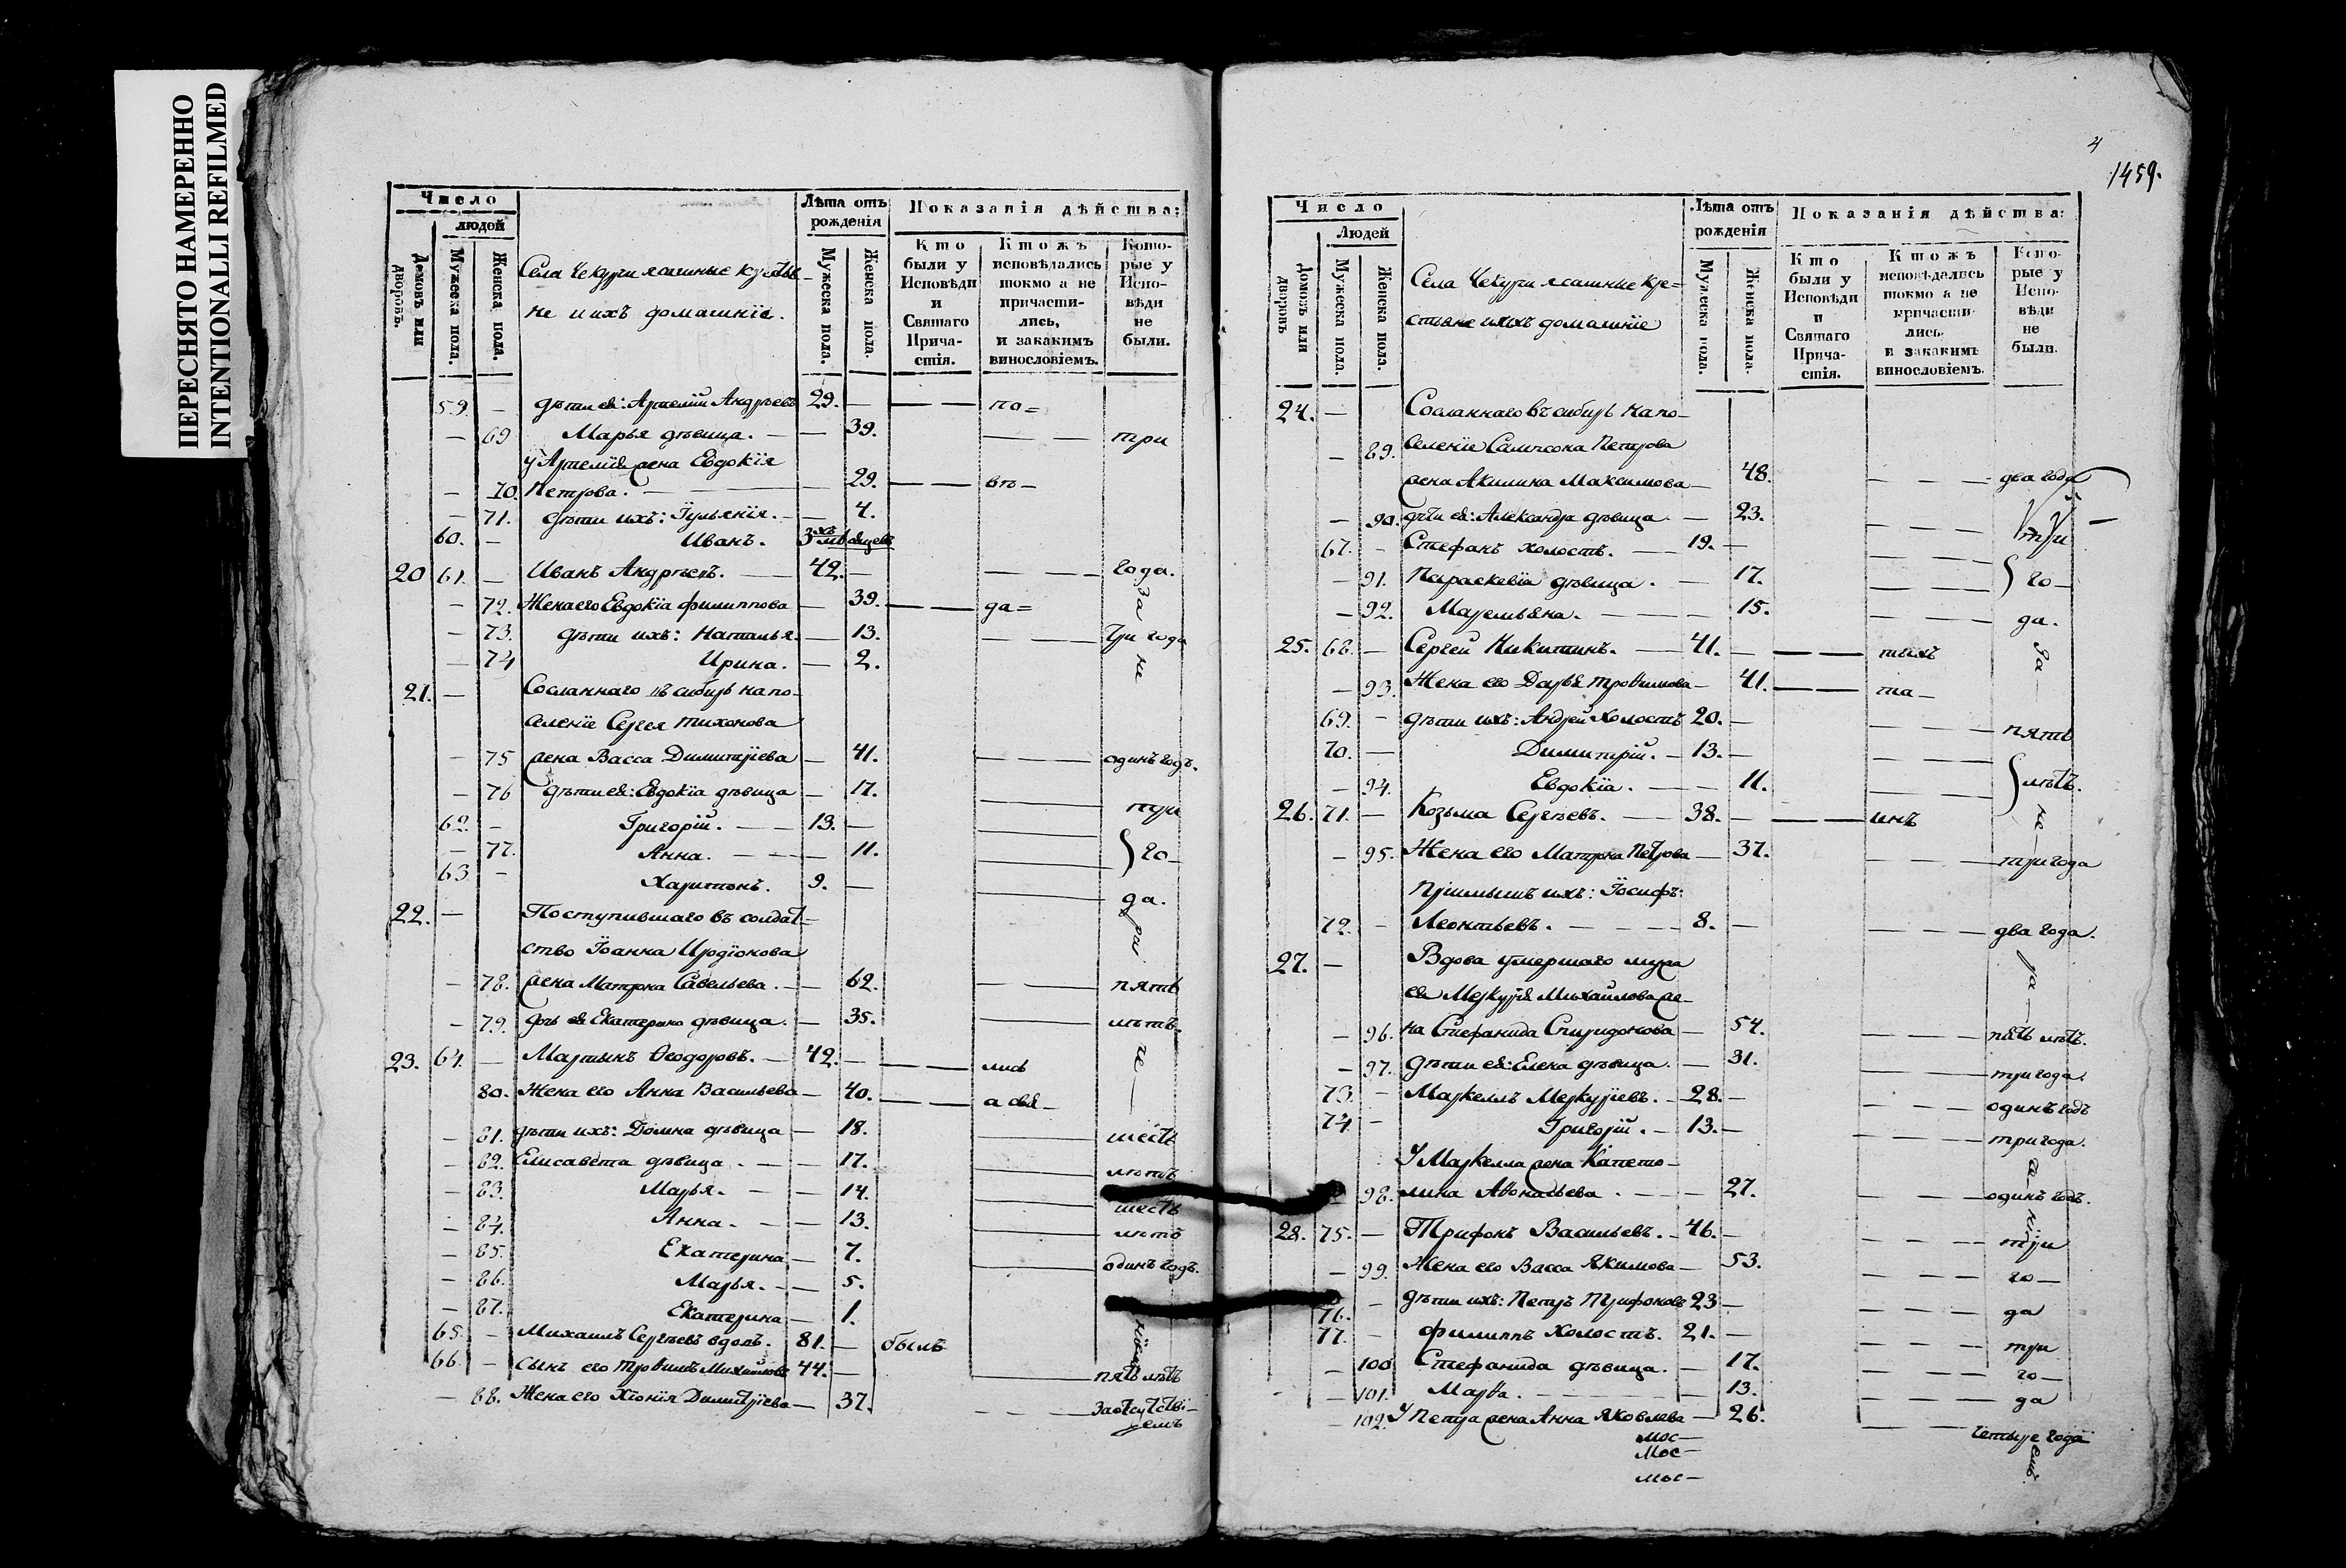 ПЕРЕСНЯТО НАМЕРЕННО
INTENTIONALLI REFILMED
Число
людей
Домовъ или дворовъ.
Мужеска пола.
Женска пола.
Села Чекури ясашные крестья-
не и ихъ домашніе.
Лѣта отъ рожденія
Мужеска пола.
Женска пола.
Показанія дѣйства:
Кто были у Исповѣди и Святаго Прича-стія.
Ктожъ исповѣдались токмо а не причасти-лись, и закакимъ винословіемъ.
Кото-рые у Испо-вѣди не были.
59. — дѣти ея: Артемій Андреевъ 29. — по=
— 69 Марья дѣвица. — 39. три
у Артемія жена Евдокія
— 70. Петрова. — 29. въ —
— 71. дѣти ихъ: Іульянія. — 4.
60. — Иванъ. 3хъ мѣсяцевъ
20 61. — Иванъ Андреевъ. 42. — года.
— 72. Жена его Евдокіа филиппова — 39. да=
— 73. дѣти ихъ: Наталья. — 13. три года
— 74 Ирина. — 2.
за не
21. — Сосланнаго въ сибирь на по-
селеніе Сергея тихонова
— 75 жена Васса Димитріева — 41. одинъ годъ.
— 76 дѣти ея: Евдокіа дѣвица — 17. три
62. — Григорій. 13. —
— 77. Анна. — 11. го-
63. — Харитонъ. 9. — да.
22. — Поступившаго въ солдат-
ство Іоанна Иродіонова
— 78. жена Матрона Савельева. — 62. пять
— 79. дочь ея Екатерина дѣвица. — 35. лѣтъ.
23. 64. — Мартынъ Ѳеодоровъ. — 42. — лись
80. Жена его Анна Васильева — 40. а овя-
— 81. дѣти ихъ: Домна дѣвица — 18. шесть
— 82. Елисавета дѣвица. — 17. лѣтъ
— 83. Марья. — 14. шесть
— 84. Анна. — 13. лѣтъ
— 85. Екатерина — 7. одинъ годъ.
— 86. Марья. — 5.
— 87. Екатерина — 1.
65. — Михаилъ Сергѣевъ вдовъ. 81. — былъ
66. — сынъ его Трофимъ Михайловъ 44. — пять лѣтъ
— 88. Жена его Хіонія Димитріева — 37. За отсутстві-
емъ
4
1459.
Число
Людей
Домовъ или дворовъ
Мужеска пола.
Женска пола.
Села Чекури ясашные кре=
стьяне и ихъ домашніе
Лѣта отъ рожденія
Мужеска пола.
Женска пола.
Показанія дѣйства:
Кто были у Исповѣди и Святаго Прича-стія.
Ктожъ исповѣдались токмо а не причасти-лись. и закакимъ винословіемъ.
Кото-рые у Испо-вѣди не были.
24. — Сосланнаго въ сибирь на по-
— 89. селеніе Сампсона Петрова
жена Акилина Максимова — 48. два года
— 90. дѣти ея: Александра дѣвица — 23. три
67. — Стефанъ холостъ. 19. —
— 91. Параскевіа дѣвица. — 17. го-
— 92. Маремьяна. — 15. да.
25. 68. — Сергей Никитинъ. 41. — тыхъ
За
— 93. Жена его Дарья трофимова — 41. та-
69. — дѣти ихъ: Андрей холостъ 20. — пять
70. — Димитрій. — 13. —
— 94. Евдокіа. — 11. лѣтъ.
26. 71. — Козьма Сергѣевъ. 38. — инъ
не
— 95. Жена его Матрона Петрова — 37. три года
пріимышъ ихъ: Іосифъ:
72. — Леонтьевъ. 8. — два года.
27. — Вдова умершаго мужа
ея Меркурія Михайлова же-
— 96. на Стефанида Спиридонова — 54. пять лѣтъ.
— 97. дѣти ея: Елена дѣвица. — 31. три года.
73. — Маркеллъ Меркуріевъ. 28. — одинъ годъ
74. — Григорій. — 13. — три года.
У Маркелла жена Капето-
98. лина Афонасьева. — 27. одинъ годъ.
28. 75. — Трифонъ Васильевъ. 46. — три
— 99. Жена его Васса Якимова — 53. го —
76. — дѣти ихъ: Петръ Трифоновъ 23 — да
77. — филиппъ холостъ. 21. — три
— 100 Стефанида дѣвица. — 17. го —
— 101. Марѳа. — 13. да
— 102. У Петра жена Анна Яковлева — 26. четыре года
емъ.
мос—
мос—
мос—